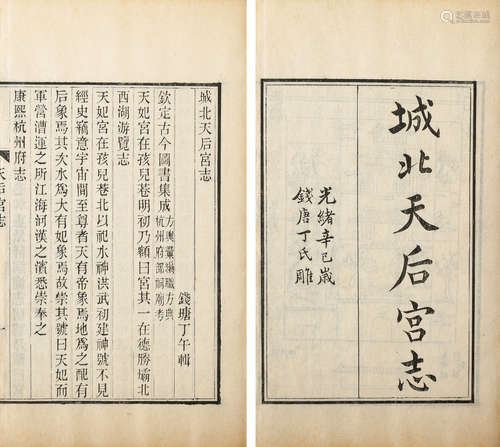 城北天后宮志
光緒辛巳歲
錢唐丁氏雕
城北天后宮志
錢塘丁午輯
欽定古今圖書集成方輿彙編職方典杭州府部祠廟考
天妃宮在孩兒巷明初乃額曰宮其一在德勝壩北
西湖游覽志
天妃宮在孩兒巷北以祀水神洪武初建神號不見
經史竊意宇宙間至尊者天有帝象焉地爲之配有
后象焉其次水爲大有妃象焉故崇其號曰天妃而
軍營漕運之所江海河漢之濱悉崇奉之
康熙杭州府志
天后宮志
一